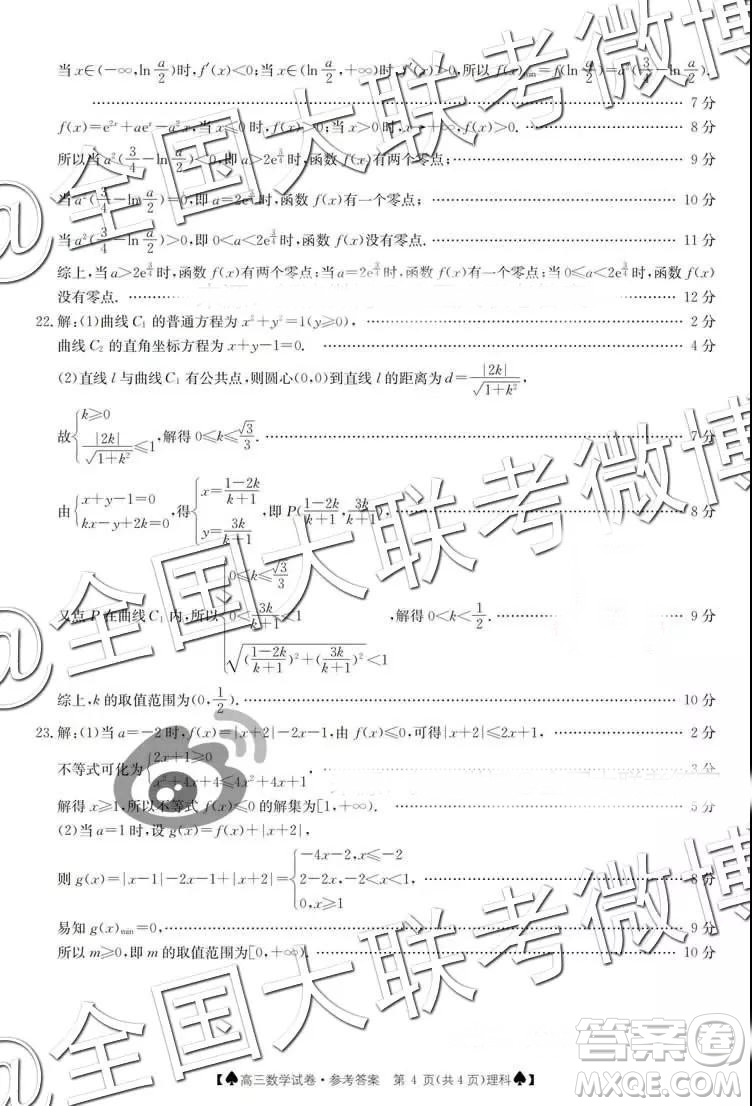 当x∈(-∞,ln a/2)时,f′(x)<0;当x∈(ln a/2,+∞)时,f′(x)>0,所以f(x)min=f(ln a/2)=a²(3/4-ln a/2).
7分
f(x)=e²ˣ+aeˣ-a²x,当x≤0时,f(x)>0;当x>0时,f(x)>0. 8分
所以当a²(3/4-ln a/2)<0,即a>2e^(3/4)时,函数f(x)有两个零点; 9分
当a²(3/4-ln a/2)=0,即a=2e^(3/4)时,函数f(x)有一个零点; 10分
当a²(3/4-ln a/2)>0,即0<a<2e^(3/4)时,函数f(x)没有零点. 11分
综上,当a>2e^(3/4)时,函数f(x)有两个零点;当a=2e^(3/4)时,函数f(x)有一个零点;当0≤a<2e^(3/4)时,函数f(x)
没有零点. 12分
22.解:(1)曲线C₁的普通方程为x²+y²=1(y≥0), 2分
曲线C₂的直角坐标方程为x+y-1=0. 4分
(2)直线l与曲线C₁有公共点,则圆心(0,0)到直线l的距离为d=|2k|/√(1+k²),
故{k≥0, |2k|/√(1+k²)≤1,解得0≤k≤√3/3. 7分
由{x+y-1=0, kx-y+2k=0,得{x=(1-2k)/(k+1), y=3k/(k+1),即P((1-2k)/(k+1),3k/(k+1)), 8分
又点P在曲线C₁内,所以{0≤k≤√3/3, 0<3k/(k+1)<1, √(((1-2k)/(k+1))²+(3k/(k+1))²)<1,解得0<k<1/2. 9分
综上,k的取值范围为(0,1/2). 10分
23.解:(1)当a=-2时,f(x)=|x+2|-2x-1,由f(x)≤0,可得|x+2|≤2x+1, 2分
不等式可化为{2x+1≥0, x²+4x+4≤4x²+4x+1, 3分
解得x≥1,所以不等式f(x)≤0的解集为[1,+∞). 5分
(2)当a=1时,设g(x)=f(x)+|x+2|,
则g(x)=|x-1|-2x-1+|x+2|={-4x-2,x≤-2 2-2x,-2<x<1, 0,x≥1 8分
易知g(x)min=0, 9分
所以m≥0,即m的取值范围为[0,+∞). 10分
【♠高三数学试卷·参考答案 第4页(共4页)理科♠】
@全国大联考微博
@全国大联考微博
@全国大联考微博
答案卷